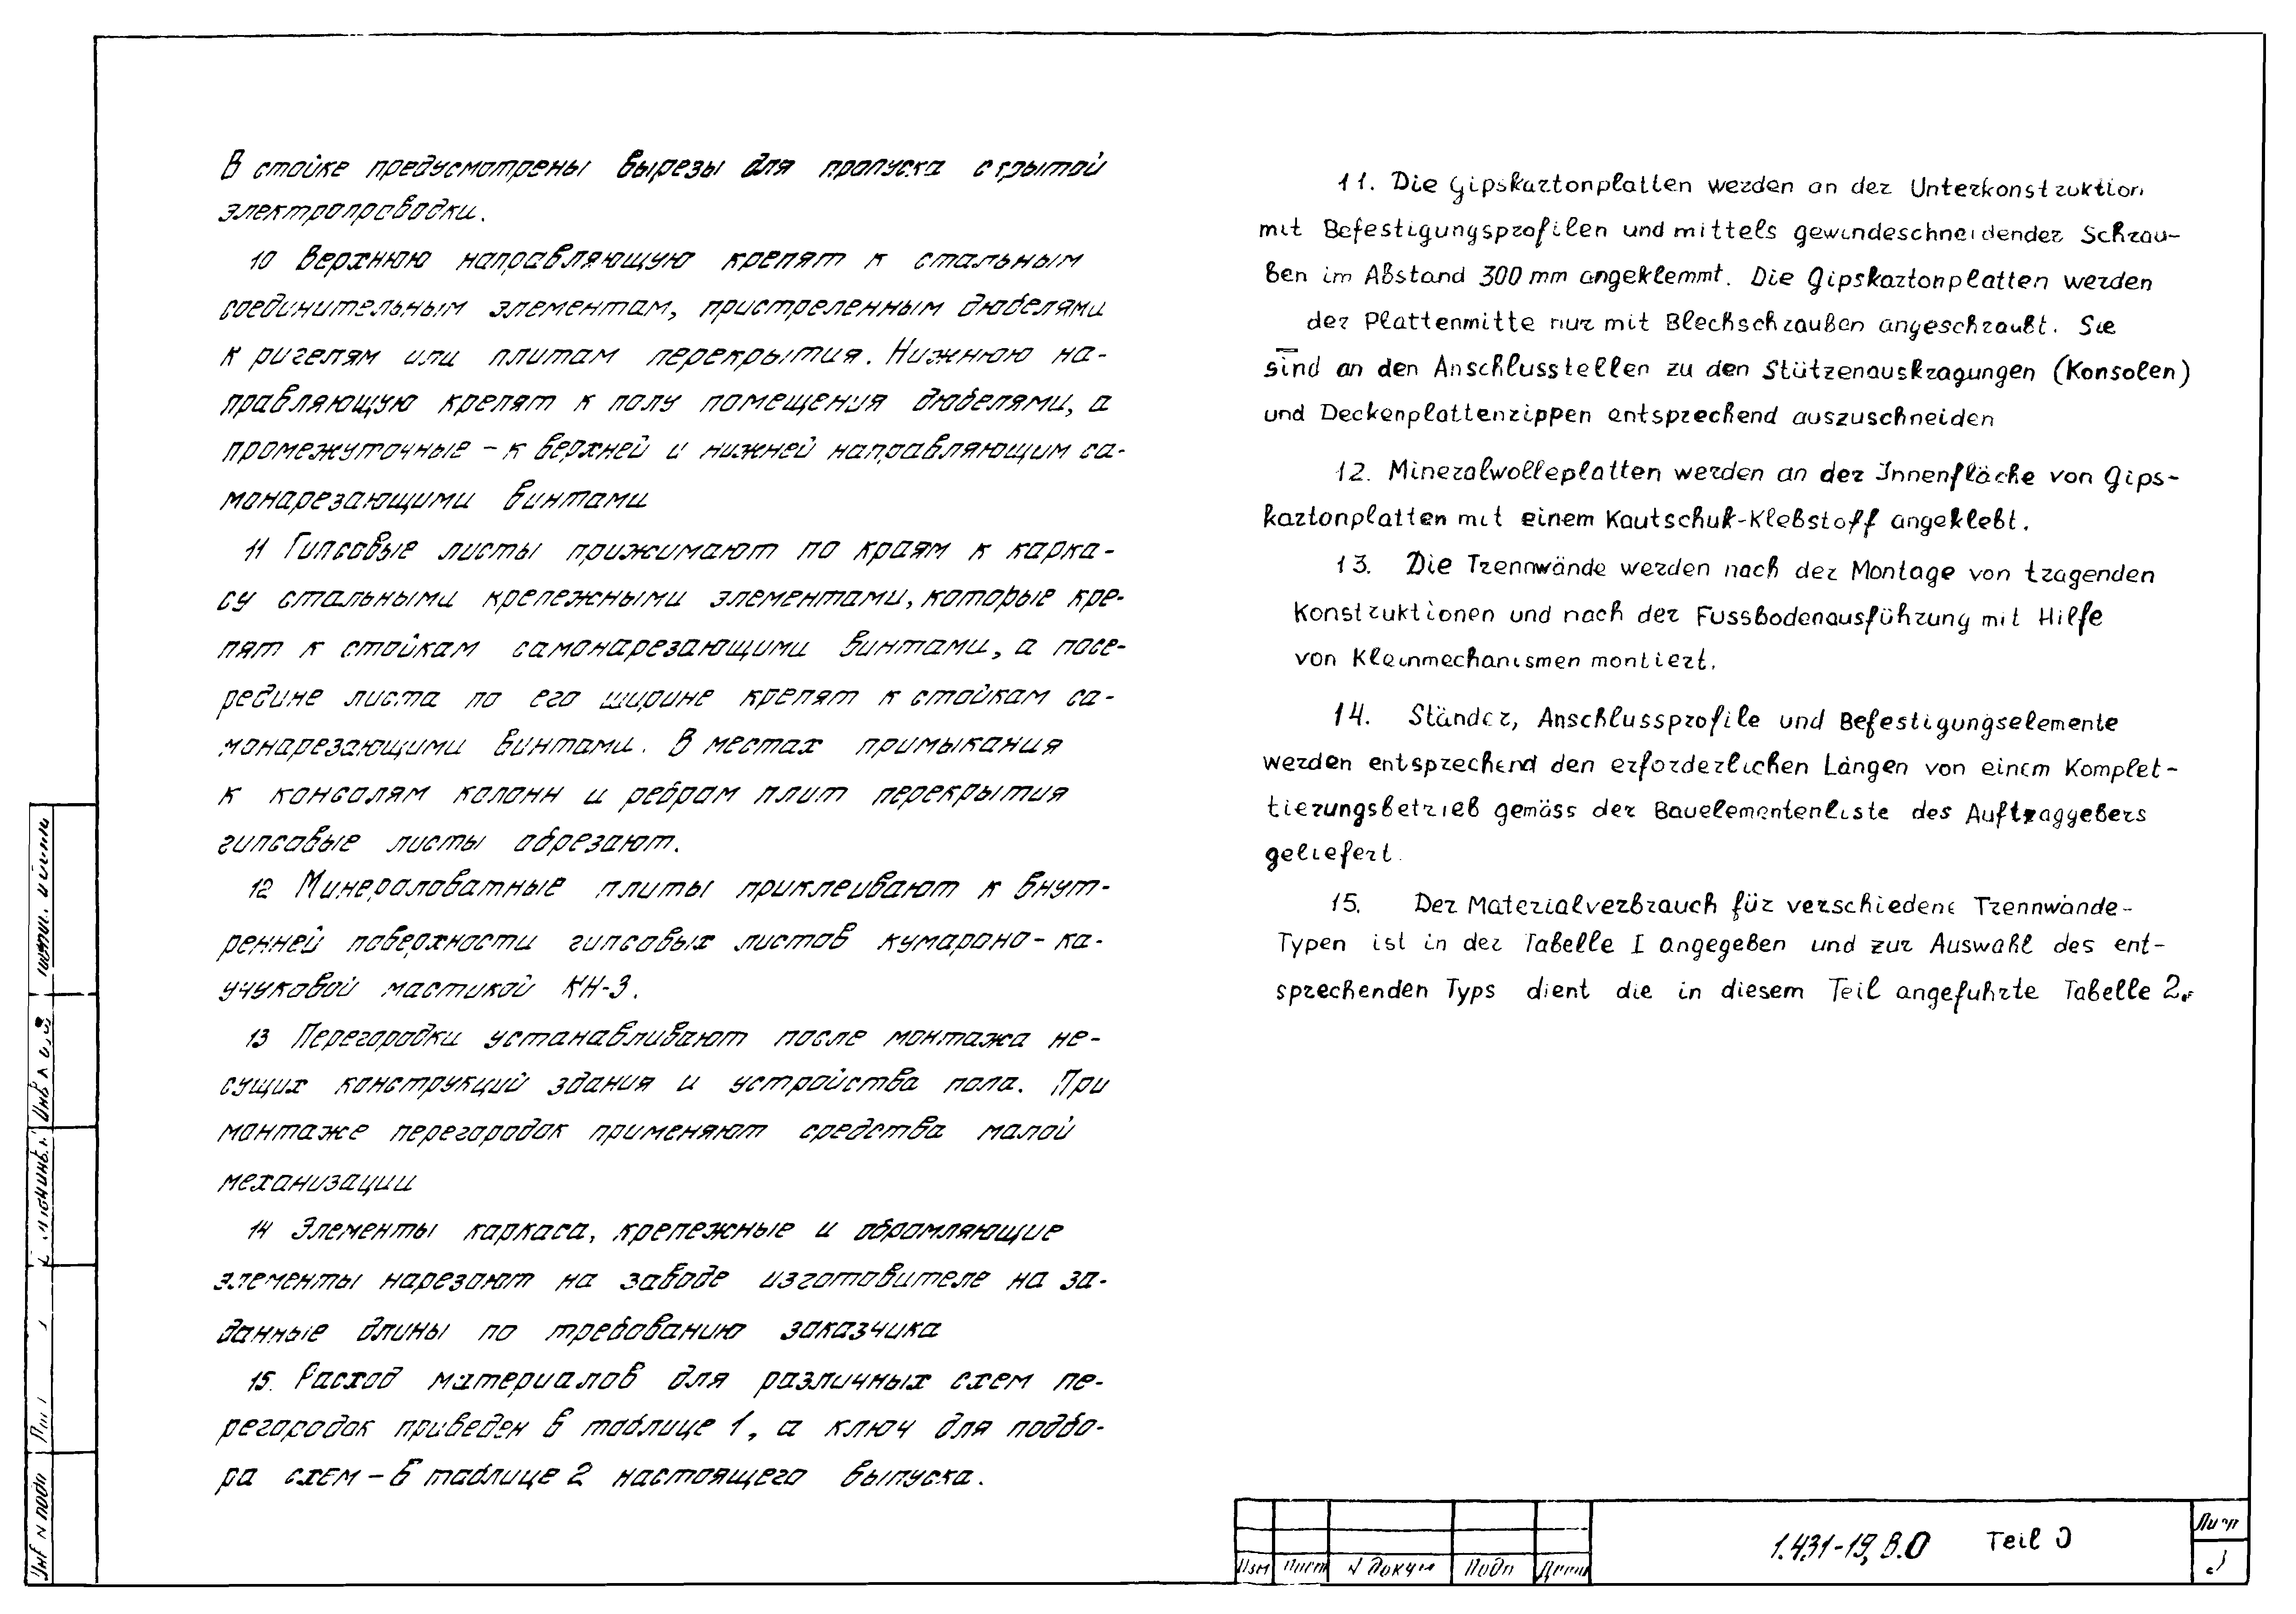 В стойке предусмотрены вырезы для пропуска скрытой
электропроводки.
10 Верхнюю направляющую крепят к стальным
соединительным элементам, пристреленным дюбелями
к ригелям или плитам перекрытия. Нижнюю на-
правляющую крепят к полу помещения дюбелями, а
промежуточные – к верхней и нижней направляющим са-
монарезающими винтами
11 Гипсовые листы прижимают по краям к карка-
су стальными крепежными элементами, которые кре-
пят к стойкам самонарезающими винтами, а посе-
редине листа по его ширине крепят к стойкам са-
монарезающими винтами. В местах примыкания
к консолям колонн и ребрам плит перекрытия
гипсовые листы обрезают.
12 Минераловатные плиты приклеивают к внут-
ренней поверхности гипсовых листов кумароно-ка-
учуковой мастикой КН-3.
13 Перегородки устанавливают после монтажа не-
сущих конструкций здания и устройства пола. При
монтаже перегородок применяют средства малой
механизации
14 Элементы каркаса, крепежные и обрамляющие
элементы нарезают на заводе изготовителе на за-
данные длины по требованию заказчика
15. Расход материалов для различных схем пе-
регородок приведен в таблице 1, а ключ для подбо-
ра схем – в таблице 2 настоящего выпуска.
11. Die Gipskartonplatten werden an der Unterkonstruktion
mit Befestigungsprofilen und mittels gewindeschneidender Schrau-
ben im Abstand 300 mm angeklemmt. Die Gipskartonplatten werden
der Plattenmitte nur mit Blechschrauben angeschraubt. Sie
sind an den Anschlusstellen zu den Stützenauskragungen (Konsolen)
und Deckenplattenrippen entsprechend auszuschneiden
12. Mineralwolleplatten werden an der Innenfläche von Gips-
kartonplatten mit einem Kautschuk-Klebstoff angeklebt.
13. Die Trennwände werden nach der Montage von tragenden
Konstruktionen und nach der Fussbodenausführung mit Hilfe
von Kleinmechanismen montiert.
14. Ständer, Anschlussprofile und Befestigungselemente
werden entsprechend den erforderlichen Längen von einem Komplet-
tierungsbetrieb gemäss der Bauelementenliste des Auftraggebers
geliefert.
15. Der Materialverbrauch für verschiedene Trennwände-
Typen ist in der Tabelle I angegeben und zur Auswahl des ent-
sprechenden Typs dient die in diesem Teil angefuhrte Tabelle 2.
Инв N подл
Изм Лист N докум Подп Дата
1.431-19, В.0 Teil 0
Лист